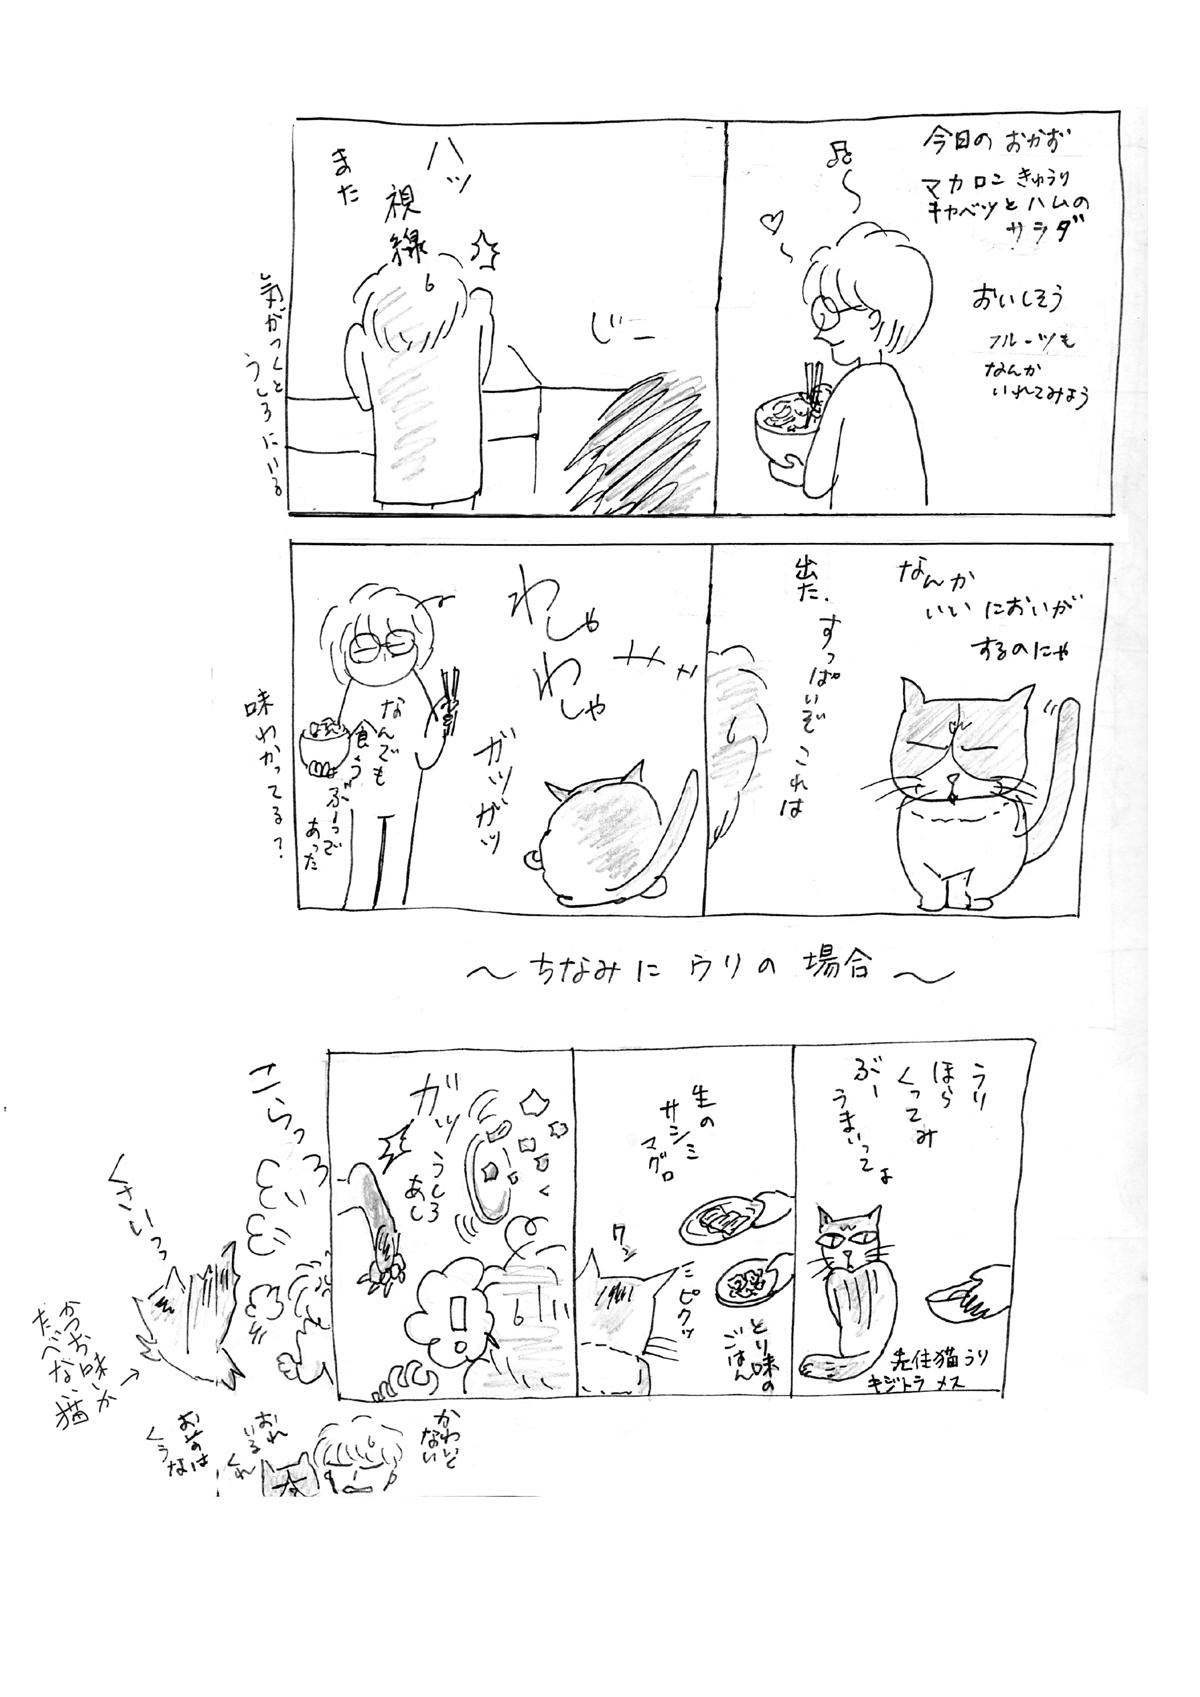 今日のおかず
マカロニきゅうり
キャベツとハムの
サラダ
おいしそう
フルーツも
なんか
いれてみよう
ハッ
また
視線
じー
気がつくと
うしろにいる
なんか
いいにおいが
するのにゃ
出た.
すっぱいぞこれは
わしゃ
わしゃ
ガツガツ
なんでも
食う
ぶーで
あった
味わかってる?
〜ちなみにウリの場合〜
うり
ほら
くってみ
ぶー
うまいってよ
先住猫うり
キジトラメス
生の
サシミ
マグロ
とり味の
ごはん
ピクッ
ガッ
うしろ
あし
!
こらっ
くさいっっ
かつお味しか
たべない猫
かわいく
ない
おれ
いる
くれ
お前は
くうな